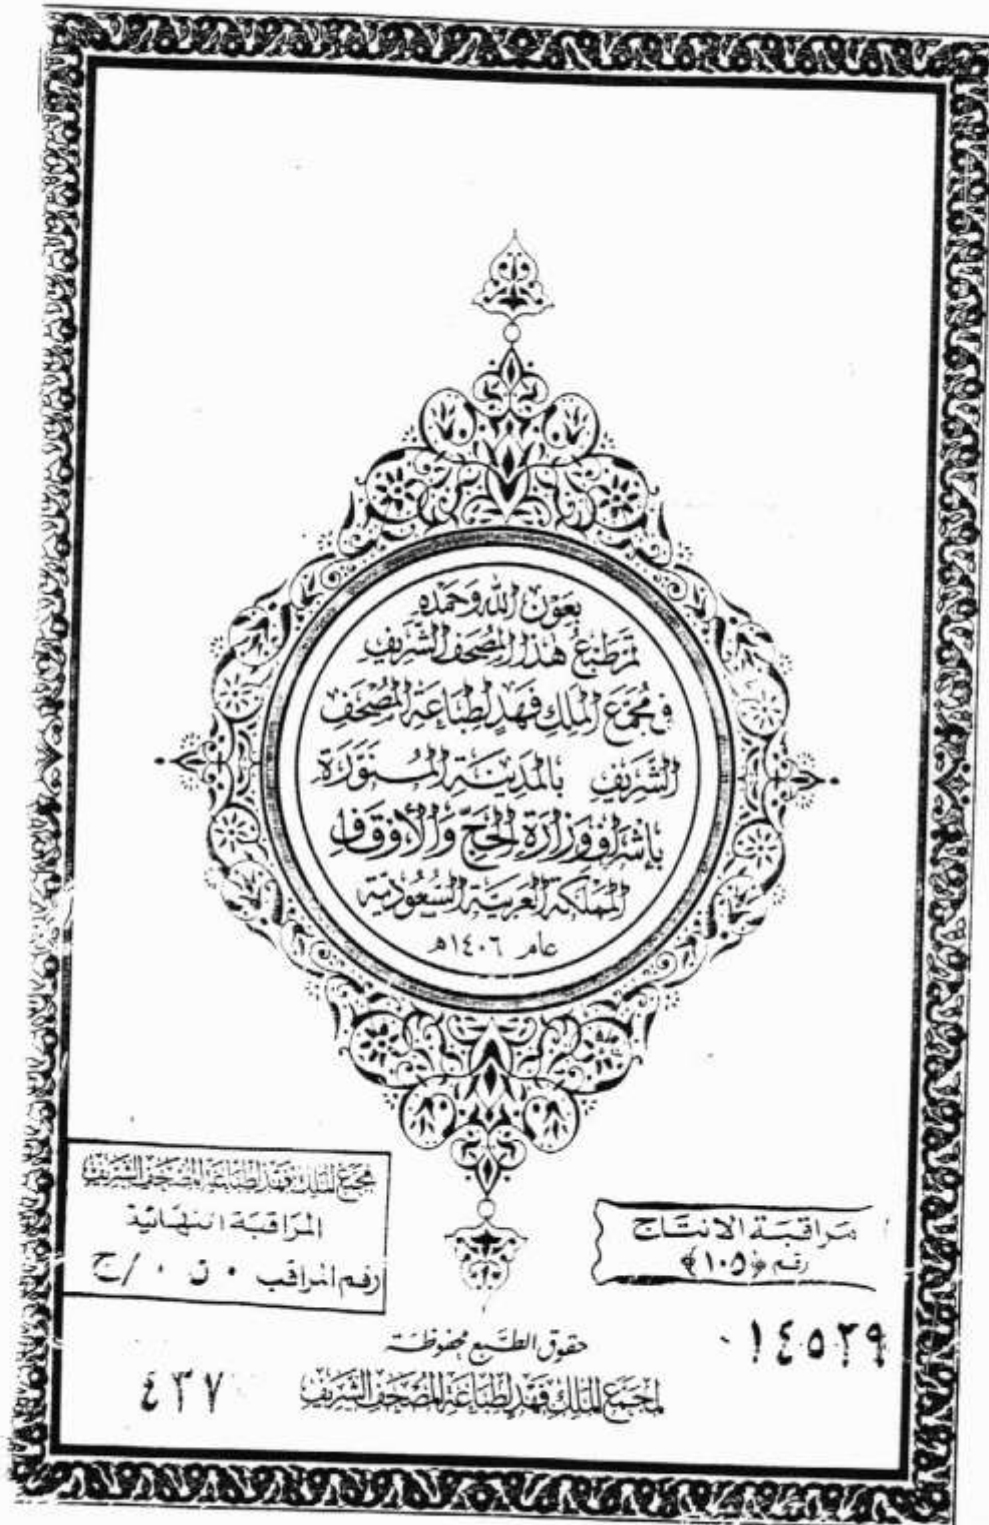 بعون الله وحمده
تم طبع هذا المصحف الشريف
في مجمع الملك فهد لطباعة المصحف
الشريف بالمدينة المنورة
بإشراف وزارة الحج والأوقاف
المملكة العربية السعودية
عام ١٤٠٦هـ
مراقبة الانتاج
رقم ﴿١٠٥﴾
مجمع الملك فهد لطباعة المصحف الشريف
المراقبة النهائية
رقم المراقب
٠١٤٥٢٩
حقوق الطبع محفوظة
لمجمع الملك فهد لطباعة المصحف الشريف
٤٣٧